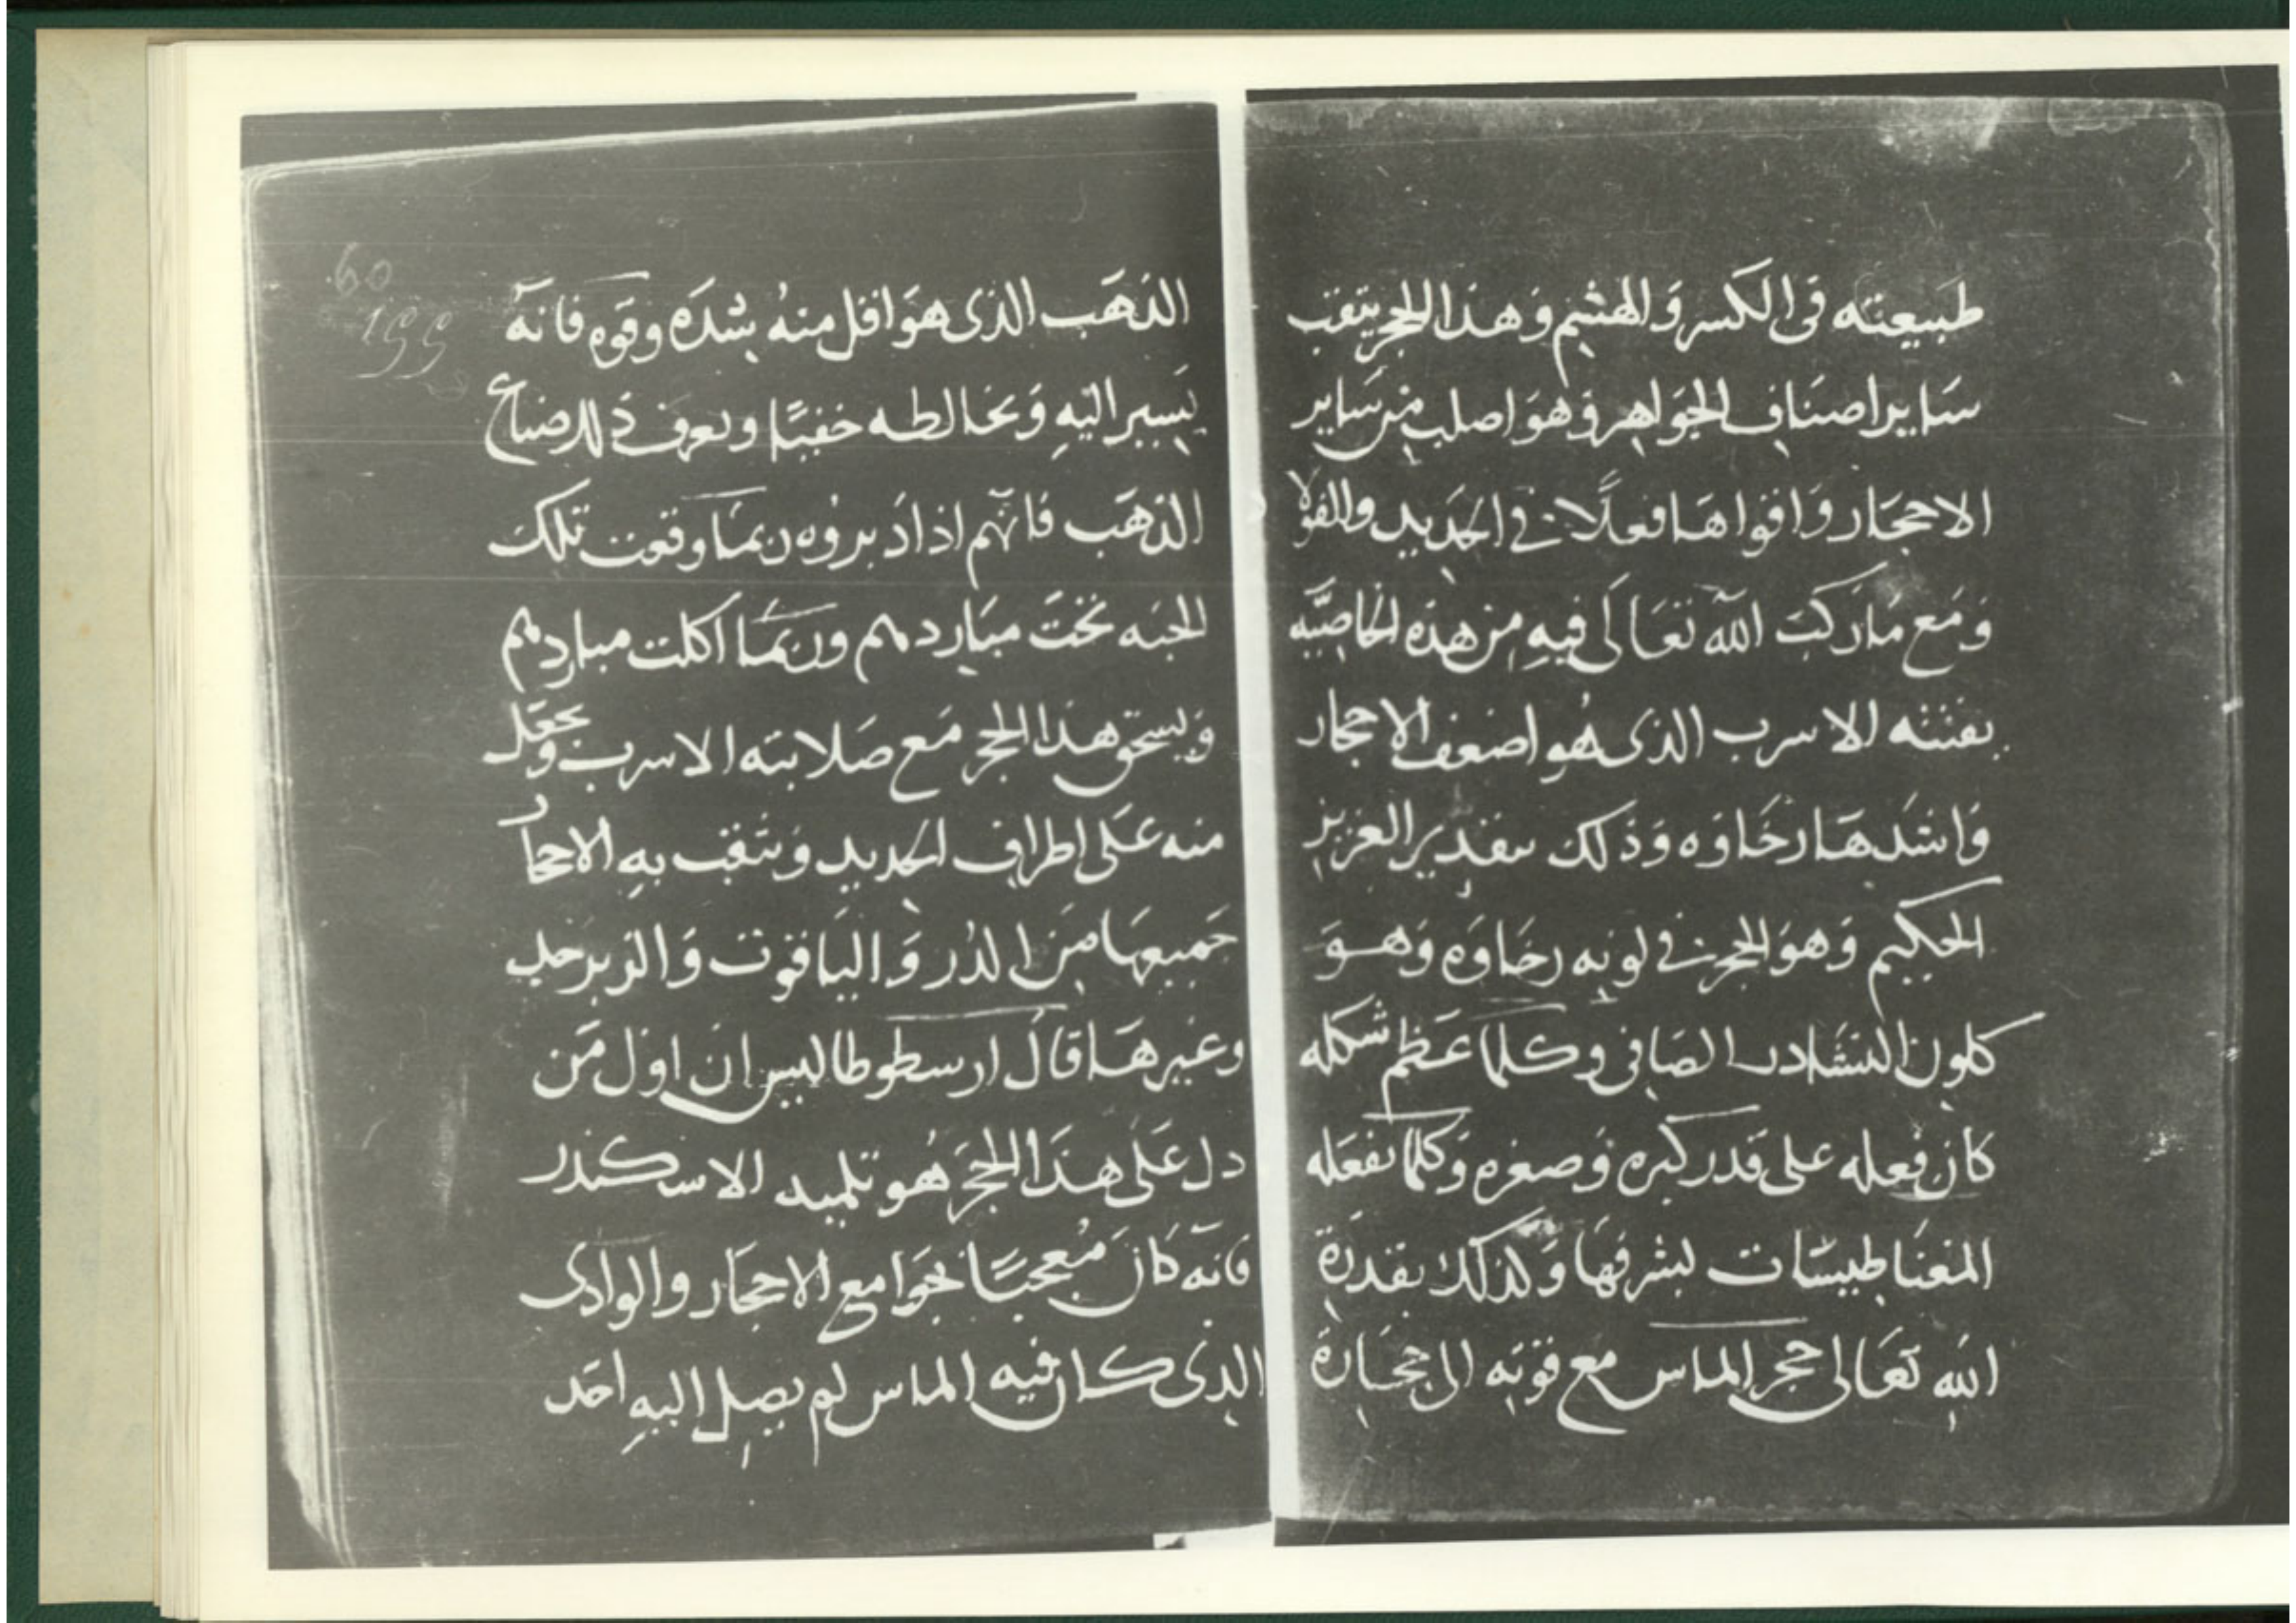 طبيعته في الكسر والهشم وهذا الحجر يثقب
ساير اصناف الجواهر وهو اصلب من ساير
الاحجار واقواها فعلا في الحديد والفولا
ومع ما ركب الله تعالى فيه من هذه الخاصيه
يفتته الاسرب الذى هو اضعف الاحجار
واشدها رخاوه وذلك بتقدير العزيز
الحكيم وهو الحجر في لونه رخاوه وهو
كلون النشادر الصافى وكلما عظم شكله
كان فعله على قدر كبره وصغره وكلما تفعله
المغناطيسات لشرفها وكذلك بقدرة
الله تعالى حجر الماس مع قوته الى حجارة
60
199
الذهب الذى هو اقل منه بشده وقوه فانه
يسير اليه ويخالطه خفيا ويعرف ذلك صناع
الذهب فانهم اذا دبروه ربما وقعت تلك
الحبه تحت مباردهم وربما اكلت مباردهم
ويسحق هذا الحجر مع صلابته الاسرب ويجعل
منه على اطراف الحديد ويثقب به الاحجار
جميعها من الدر والياقوت والزبرجد
وغيرها قال ارسطوطاليس ان اول من
دل على هذا الحجر هو تلميد الاسكندر
فانه كان معجبا بجوامع الاحجار والوادى
الذى كان فيه الماس لم يصل اليه احد